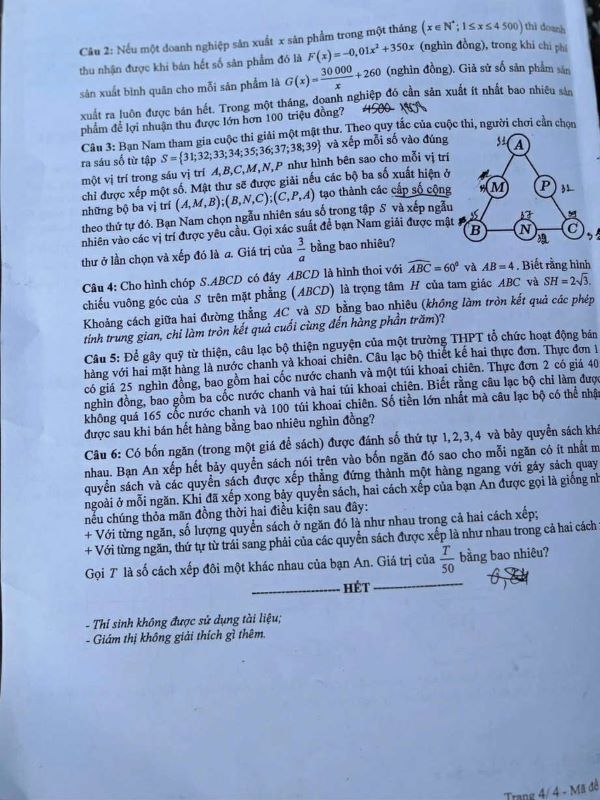 Câu 2: Nếu một doanh nghiệp sản xuất x sản phẩm trong một tháng (x ∈ N*; 1 ≤ x ≤ 4 500) thì doanh
thu nhận được khi bán hết số sản phẩm đó là F(x) = −0,01x² + 350x (nghìn đồng), trong khi chi phí
sản xuất bình quân cho mỗi sản phẩm là G(x) = 30 000/x + 260 (nghìn đồng). Giả sử số sản phẩm sản
xuất ra luôn được bán hết. Trong một tháng, doanh nghiệp đó cần sản xuất ít nhất bao nhiêu sản
phẩm để lợi nhuận thu được lớn hơn 100 triệu đồng? 4500
Câu 3: Bạn Nam tham gia cuộc thi giải một mật thư. Theo quy tắc của cuộc thi, người chơi cần chọn
ra sáu số từ tập S = {31;32;33;34;35;36;37;38;39} và xếp mỗi số vào đúng
một vị trí trong sáu vị trí A,B,C,M,N,P như hình bên sao cho mỗi vị trí
chỉ được xếp một số. Mật thư sẽ được giải nếu các bộ ba số xuất hiện ở
những bộ ba vị trí (A,M,B);(B,N,C);(C,P,A) tạo thành các cấp số cộng
theo thứ tự đó. Bạn Nam chọn ngẫu nhiên sáu số trong tập S và xếp ngẫu
nhiên vào các vị trí được yêu cầu. Gọi xác suất để bạn Nam giải được mật
thư ở lần chọn và xếp đó là a. Giá trị của 3/a bằng bao nhiêu?
A
M P
B N C
Câu 4: Cho hình chóp S.ABCD có đáy ABCD là hình thoi với ABC = 60° và AB = 4. Biết rằng hình
chiếu vuông góc của S trên mặt phẳng (ABCD) là trọng tâm H của tam giác ABC và SH = 2√3.
Khoảng cách giữa hai đường thẳng AC và SD bằng bao nhiêu (không làm tròn kết quả các phép
tính trung gian, chỉ làm tròn kết quả cuối cùng đến hàng phần trăm)?
Câu 5: Để gây quỹ từ thiện, câu lạc bộ thiện nguyện của một trường THPT tổ chức hoạt động bán
hàng với hai mặt hàng là nước chanh và khoai chiên. Câu lạc bộ thiết kế hai thực đơn. Thực đơn 1
có giá 25 nghìn đồng, bao gồm hai cốc nước chanh và một túi khoai chiên. Thực đơn 2 có giá 40
nghìn đồng, bao gồm ba cốc nước chanh và hai túi khoai chiên. Biết rằng câu lạc bộ chỉ làm được
không quá 165 cốc nước chanh và 100 túi khoai chiên. Số tiền lớn nhất mà câu lạc bộ có thể nhận
được sau khi bán hết hàng bằng bao nhiêu nghìn đồng?
Câu 6: Có bốn ngăn (trong một giá để sách) được đánh số thứ tự 1, 2, 3, 4 và bảy quyển sách khác
nhau. Bạn An xếp hết bảy quyển sách nói trên vào bốn ngăn đó sao cho mỗi ngăn có ít nhất
quyển sách và các quyển sách được xếp thẳng đứng thành một hàng ngang với gáy sách quay
ngoài ở mỗi ngăn. Khi đã xếp xong bảy quyển sách, hai cách xếp của bạn An được gọi là giống
nếu chúng thỏa mãn đồng thời hai điều kiện sau đây:
+ Với từng ngăn, số lượng quyển sách ở ngăn đó là như nhau trong cả hai cách xếp;
+ Với từng ngăn, thứ tự từ trái sang phải của các quyển sách được xếp là như nhau trong cả hai cách
Gọi T là số cách xếp đôi một khác nhau của bạn An. Giá trị của T/50 bằng bao nhiêu?
HẾT
- Thí sinh không được sử dụng tài liệu;
- Giám thị không giải thích gì thêm.
Trang 4/ 4 - Mã đề